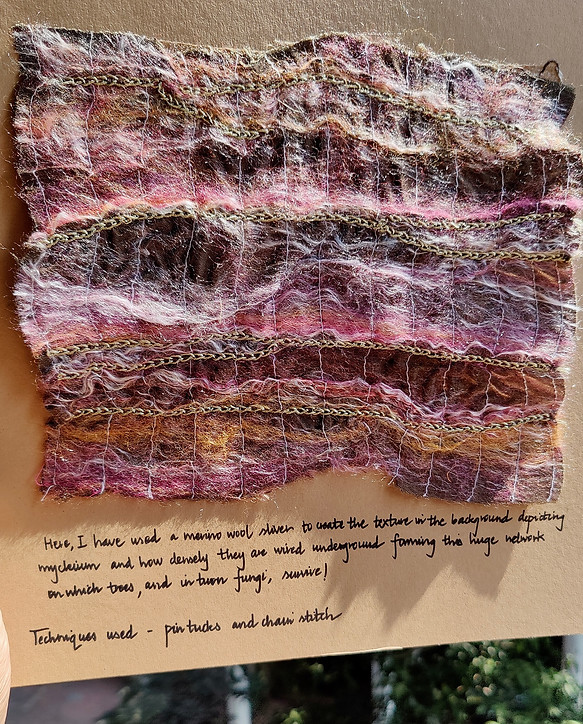 Here, I have used a merino wool sliver to create the texture in the background depicting
mycleium and how densely they are wired underground forming this huge network
on which trees, and in turn fungi, survive!
Techniques used - pin tucks and chain stitch